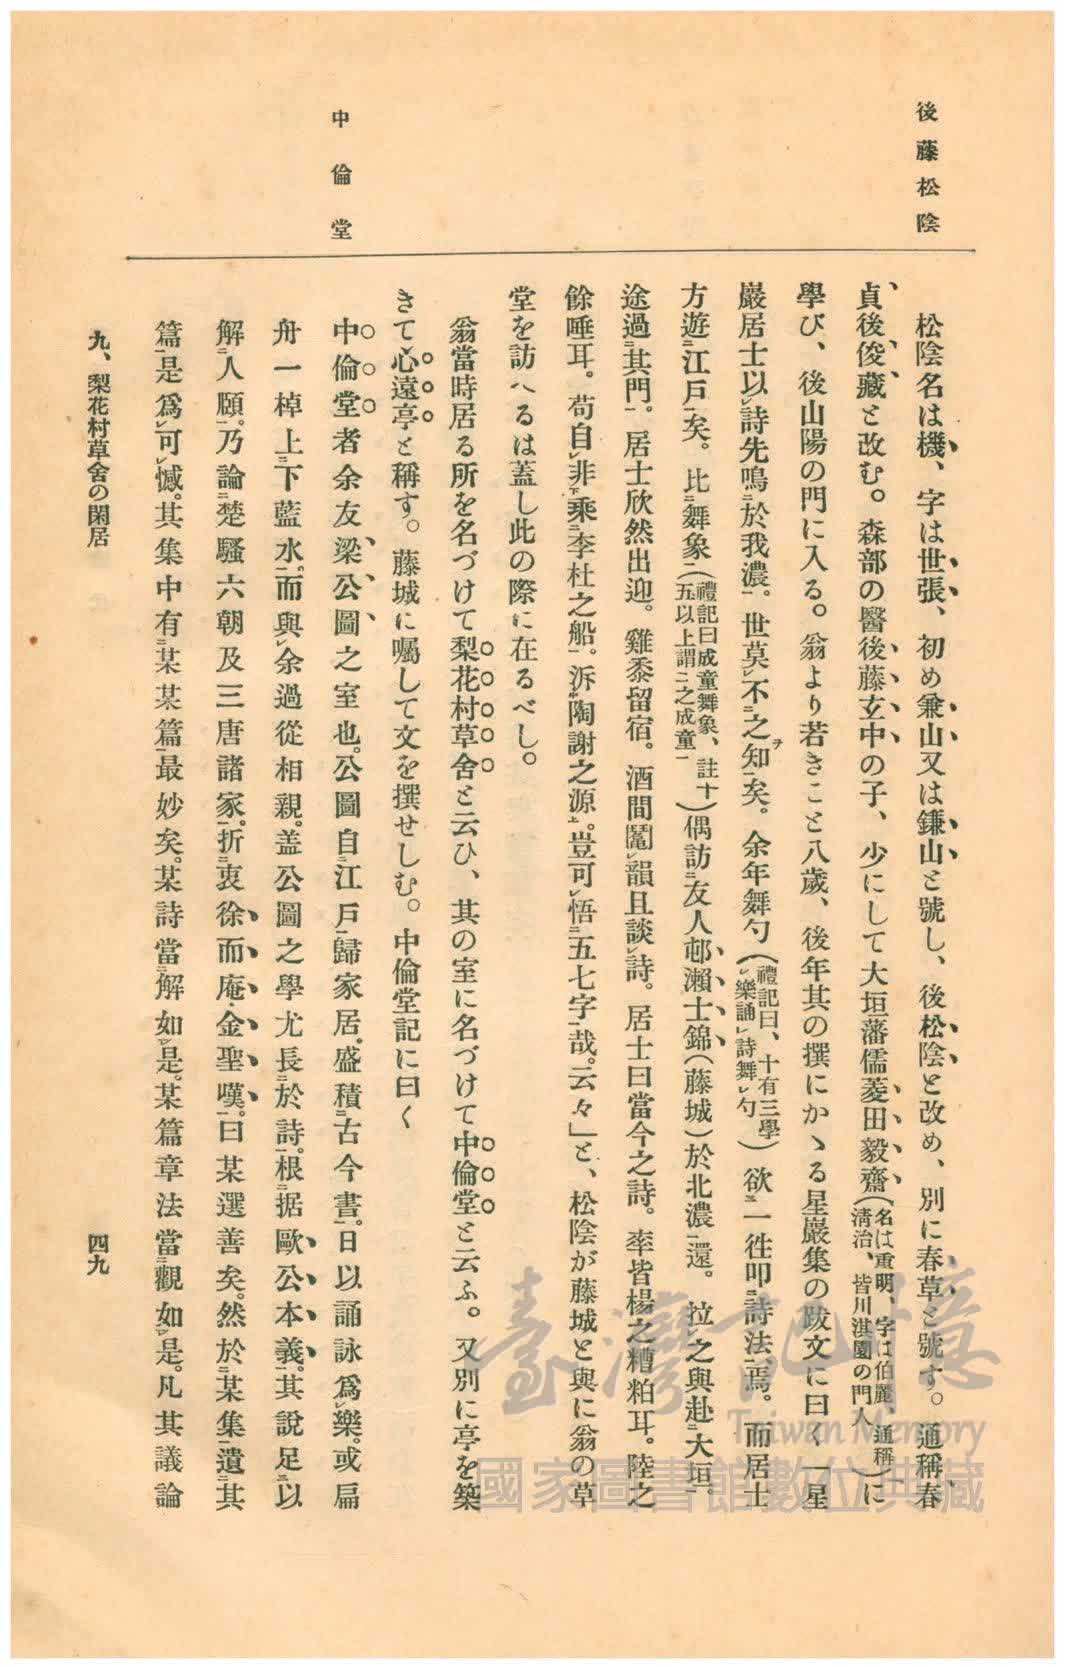 後藤松陰
松陰名は機、字は世張、初め兼山又は鎌山と號し、後松陰と改め、別に春草と號す。通稱春
貞後俊藏と改む。森部の醫後藤玄中の子、少にして大垣藩儒菱田毅齋(名は重明、字は伯麗、通稱清治、皆川淇園の門人)に
學び、後山陽の門に入る。翁より若きこと八歲、後年其の撰にかゝる星巖集の跋文に曰く「星
巖居士以レ詩先鳴二於我濃一。世莫レ不二之知一ヲ矣。余年舞勺(禮記曰、十有三學レ樂誦レ詩舞レ勺)欲二一徃叩二詩法一焉。而居士
方遊二江戶一矣。比二舞象一(禮記曰成童舞象、註十五以上謂二之成童一)偶訪二友人邨瀨士錦(藤城)於北濃一還。拉レ之與赴二大垣一。
途過二其門一。居士欣然出迎。雞黍留宿。酒間鬮レ韻且談レ詩。居士曰當今之詩。率皆楊之糟粕耳。陸之
餘唾耳。苟自レ非下乘二李杜之船一。泝中陶謝之源上。豈可レ悟二五七字一哉。云々」と、松陰が藤城と與に翁の草
堂を訪へるは蓋し此の際に在るべし。
翁當時居る所を名づけて梨花村草舍と云ひ、其の室に名づけて中倫堂と云ふ。又別に亭を築
きて心遠亭と稱す。藤城に囑して文を撰せしむ。中倫堂記に曰く
中倫堂
中倫堂者余友梁公圖之室也。公圖自二江戶一歸家居。盛積二古今書一。日以誦詠爲レ樂。或扁
舟一棹上二下藍水一。而與レ余過從相親。盖公圖之學尤長二於詩一。根据歐公本義。其說足二以
解二人頤一。乃論二楚騷六朝及三唐諸家一。折二衷徐而庵・金聖嘆一。曰某選善矣。然於二某集一遺二其
篇一是爲レ可レ憾。其集中有二某某篇一最妙矣。某詩當二解如一レ是。某篇章法當二觀如一レ是。凡其議論
九、梨花村草舍の閑居
四九
臺灣記憶
Taiwan Memory
國家圖書館數位典藏